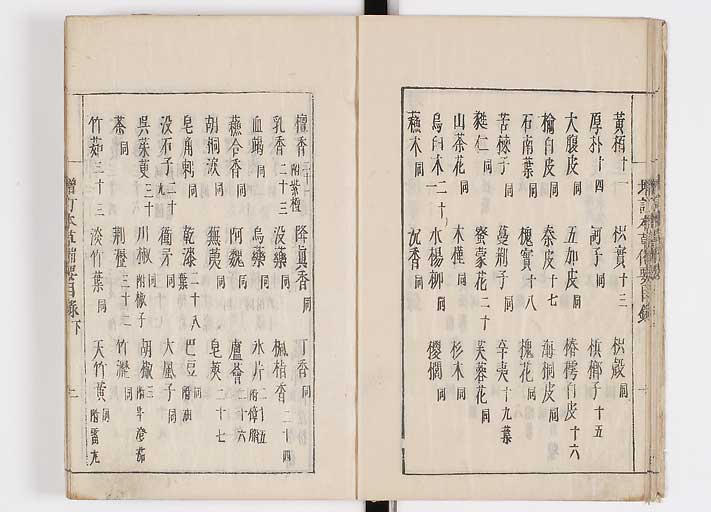 黃栢十一 枳實十三 枳殼同
厚朴十四 訶子同 檳榔子十五
大腹皮同 五加皮同 椿樗白皮十六
榆白皮同 秦皮十七 海桐皮同
石南葉同 槐實十八 槐花同
苦楝子同 蔓荊子同 辛夷十九葉
蕤仁同 蜜蒙花二十 芙蓉花同
山茶花同 木槿同 杉木同
烏臼木二十一 水楊柳同 椶櫚同
蘇木同 沉香同
檀香二十二附紫檀 降真香同 丁香同
乳香二十三 沒藥同 楓楿香二十四
血竭同 烏藥同 氷片二十五附樟腦
蘇合香同 阿魏同 盧薈二十六
胡桐淚同 蕪荑同 皂莢二十七
皂角刺同 乾漆二十八葉 巴豆同附油
沒石子二十九 衛茅同 大風子同
吳茱萸三十 川椒附椒子 胡椒三十一附畢澄茄
茶同 荊瀝三十二 竹瀝同
竹茹三十三 淡竹葉同 天竹黃同附雷丸
增訂本草備要目錄下